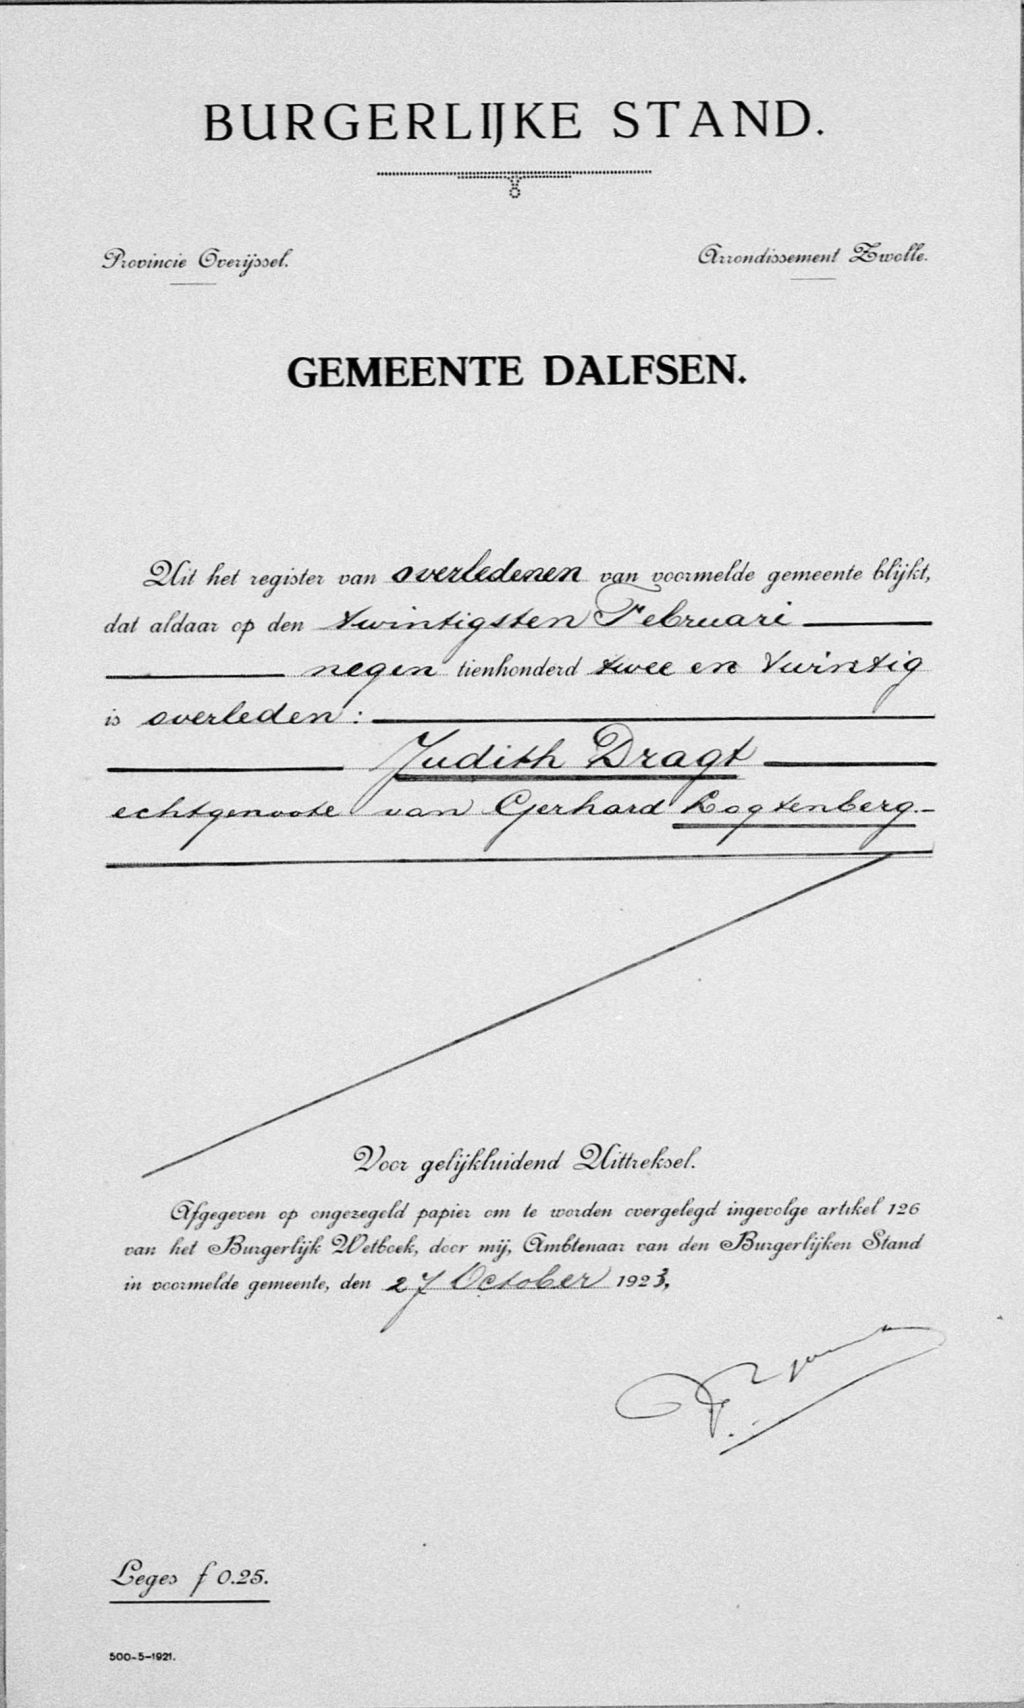 BURGERLIJKE STAND.
Provincie Overijssel. Arrondissement Zwolle.
GEMEENTE DALFSEN.
Uit het register van overledenen van voormelde gemeente blijkt,
dat aldaar op den twintigsten Februari
negen tienhonderd twee en twintig
is overleden:
Judith Dragt
echtgenoote van Gerhard Logtenberg.
Voor gelijkluidend Uittreksel.
Afgegeven op ongezegeld papier om te worden overgelegd ingevolge artikel 126
van het Burgerlijk Wetboek, door mij, Ambtenaar van den Burgerlijken Stand
in voormelde gemeente, den 27 October 1923,
Leges f 0.25.
500-5-1921.